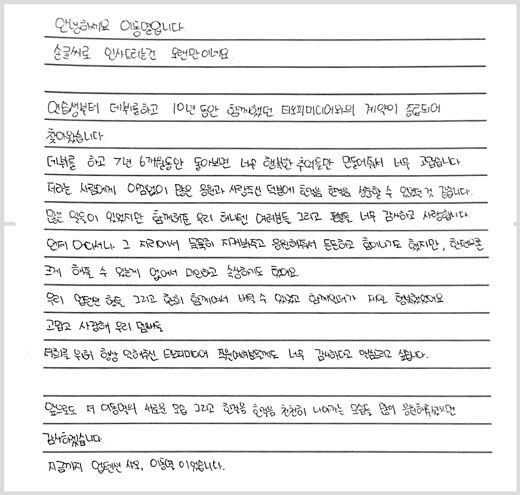 안녕하세요 이동열입니다.
손글씨로 인사드리는건 오랜만이네요.
연습생부터 데뷔를하고 10년동안 함께했던 티오피미디어와의 계약이 종료되어
찾아왔습니다
데뷔를 하고 7년 6개월동안 돌아보면 너무 행복한 추억들만 만들어줘서 너무 고맙습니다.
저라는 사람에게 아낌없이 많은 응원과 사랑주신 덕분에 한걸음 한걸음 성장할 수 있었던 것 같습니다.
많은 일들이 있었지만 함께해준 우리 허니텐 여러분들 그리고 팬분들 너무 감사하고 사랑합니다.
언제 어디서나 그 자리에서 묵묵히 지켜봐주고 응원해줘서 든든하고 힘이나기도 했지만, 한편으론
크게 해줄 수 있는게 없어서 미안하고 속상하기도 했어요
우리 업텐션 형들 그리고 환희 함께여서 버틸 수 있었고 함께일때가 제일 행복했었어요
고맙고 사랑해 우리 멤버들
저희를 위해 항상 일해주신 티오피미디어 직원여러분들께도 너무 감사하다고 말씀드리고 싶습니다.
앞으로도 저 이동열의 새로운 모습 그리고 한걸음 한걸음 천천히 나아가는 모습들 많이 응원해주셨으면
감사하겠습니다
지금까지 업텐션 샤오, 이동열 이었습니다.